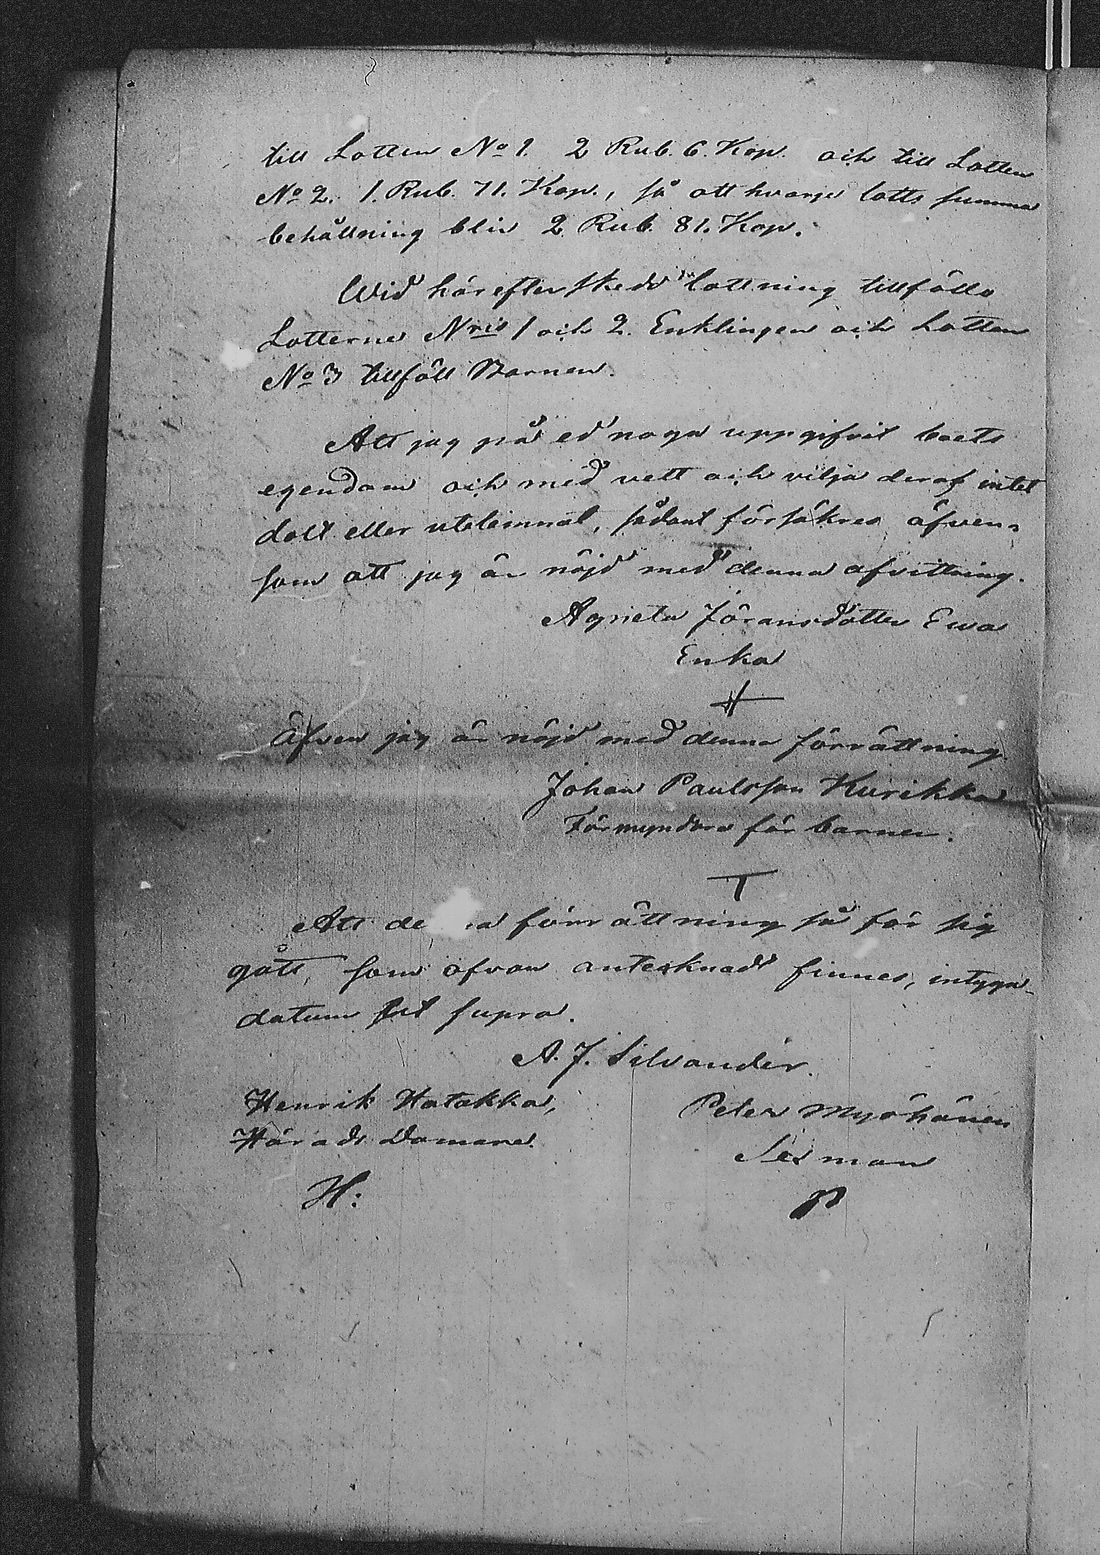 till Lotten No 1. 2 Rub. 6. Kop. och till Lotten
No 2. 1. Rub. 71. Kop., så att hvarje lotts summa
behållning blir 2 Rub. 81. Kop.
Wid härefter skedd lottning tillföllo
Lotterne Nris 1 och 2. Enklingen och Lotten
No 3 tillföll Barnen.
Att jag på ed noga uppgifvit boets
egendom och med vett och vilja deraf intet
dolt eller utelemnat, sådant försäkras äfven-
som att jag är nöjd med denna afvittning.
Agneta Jöransdotter Ewa
Enka
Äfven jag är nöjd med denna förrättning
Johan Paulsson Kurikka
Förmyndare för barnen.
Att de a förrättning så för sig
gått, som ofvan antecknadt finnes, intyga
datum ut supra.
A. J. Silvander.
Henrik Hatakka, Peter Myöhänen
Härads Domare. Sexman
H: P